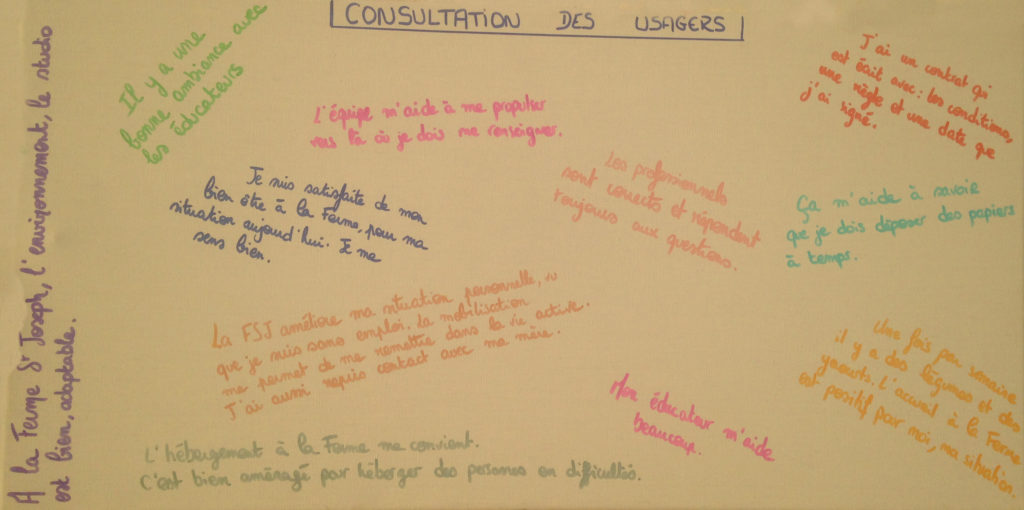 CONSULTATION DES USAGERS
A la Ferme St Joseph, l'environnement, le studio
est bien, adaptable.
Il y a une
bonne ambiance avec
les éducateurs
L'équipe m'aide à me propulser
vers là où je dois me renseigner.
J'ai un contrat qui
est écrit avec : les conditions,
une règle et une date que
j'ai signé.
Je suis satisfaite de mon
bien être à la Ferme, pour ma
situation aujourd'hui. Je me
sens bien.
Les professionnels
sont corrects et répondent
toujours aux questions.
Ça m'aide à savoir
que je dois déposer des papiers
à temps.
La FSJ améliore ma situation personnelle, vu
que je suis sans emploi. La mobilisation
me permet de me remettre dans la vie active.
J'ai aussi repris contact avec ma mère.
Une fois par semaine
il y a des légumes et des
yaourts. L'accueil à la Ferme
est positif pour moi, ma situation.
Mon éducateur m'aide
beaucoup.
L'hébergement à la Ferme me convient.
C'est bien aménagé pour héberger des personnes en difficultés.